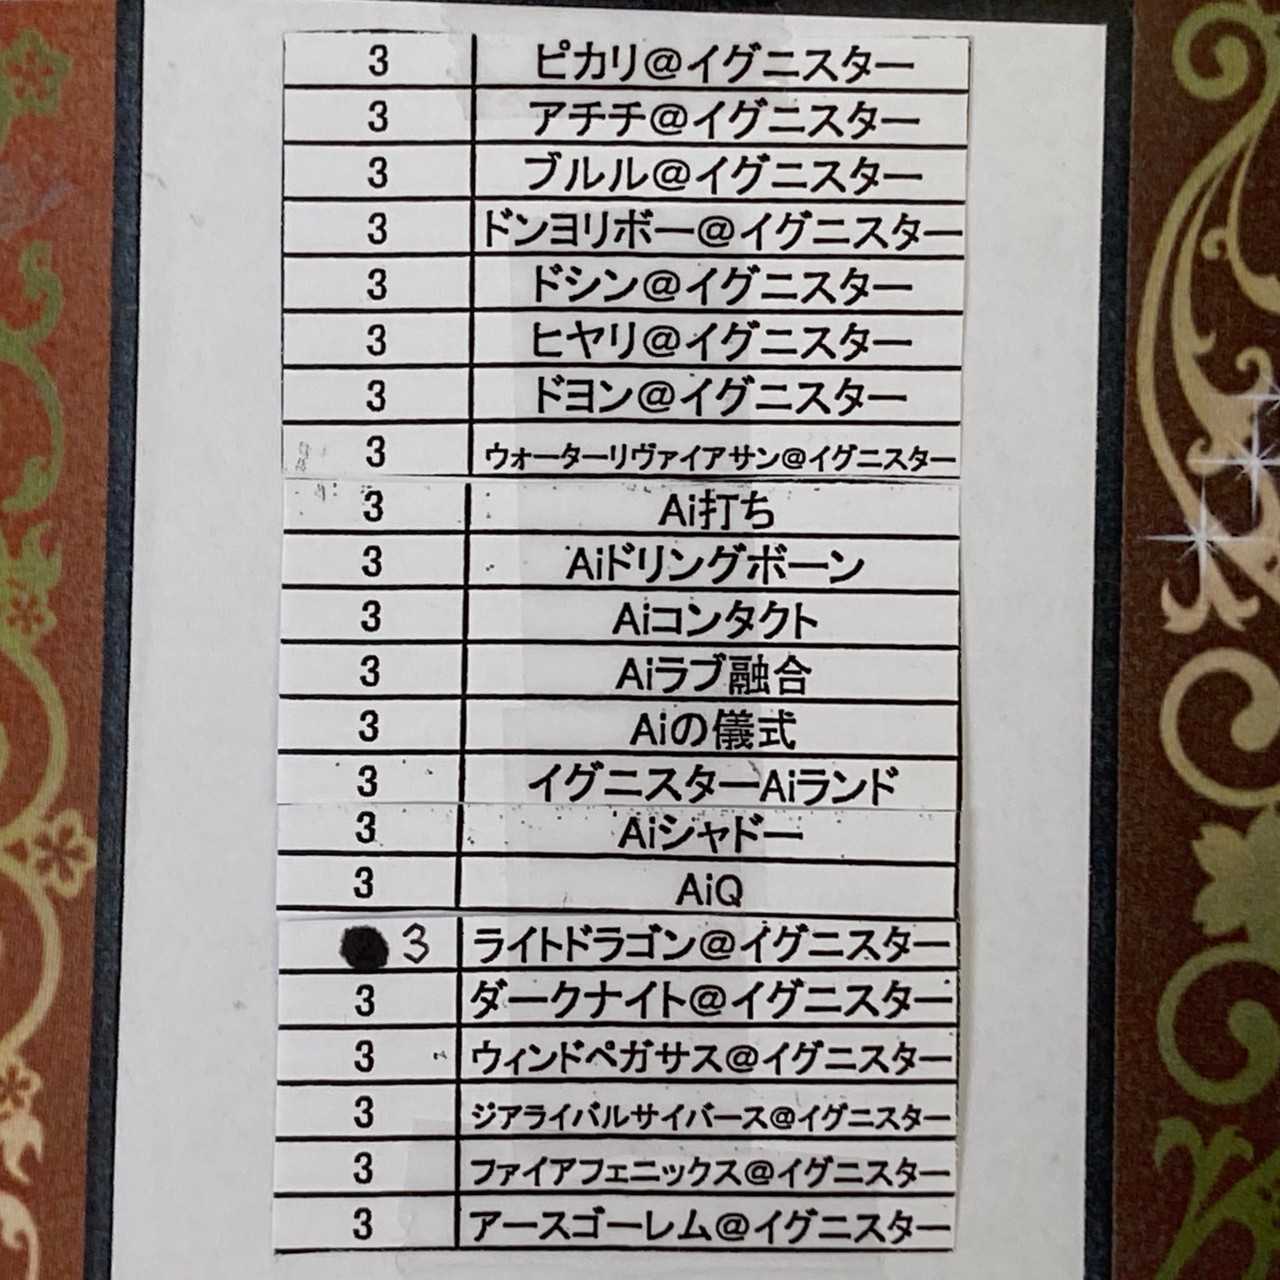 3 ピカリ@イグニスター
3 アチチ@イグニスター
3 ブルル@イグニスター
3 ドンヨリボー@イグニスター
3 ドシン@イグニスター
3 ヒヤリ@イグニスター
3 ドヨン@イグニスター
3 ウォーターリヴァイアサン@イグニスター
3 Ai打ち
3 Aiドリングボーン
3 Aiコンタクト
3 Aiラブ融合
3 Aiの儀式
3 イグニスターAiランド
3 Aiシャドー
3 AiQ
3 ライトドラゴン@イグニスター
3 ダークナイト@イグニスター
3 ウィンドペガサス@イグニスター
3 ジアライバルサイバース@イグニスター
3 ファイアフェニックス@イグニスター
3 アースゴーレム@イグニスター